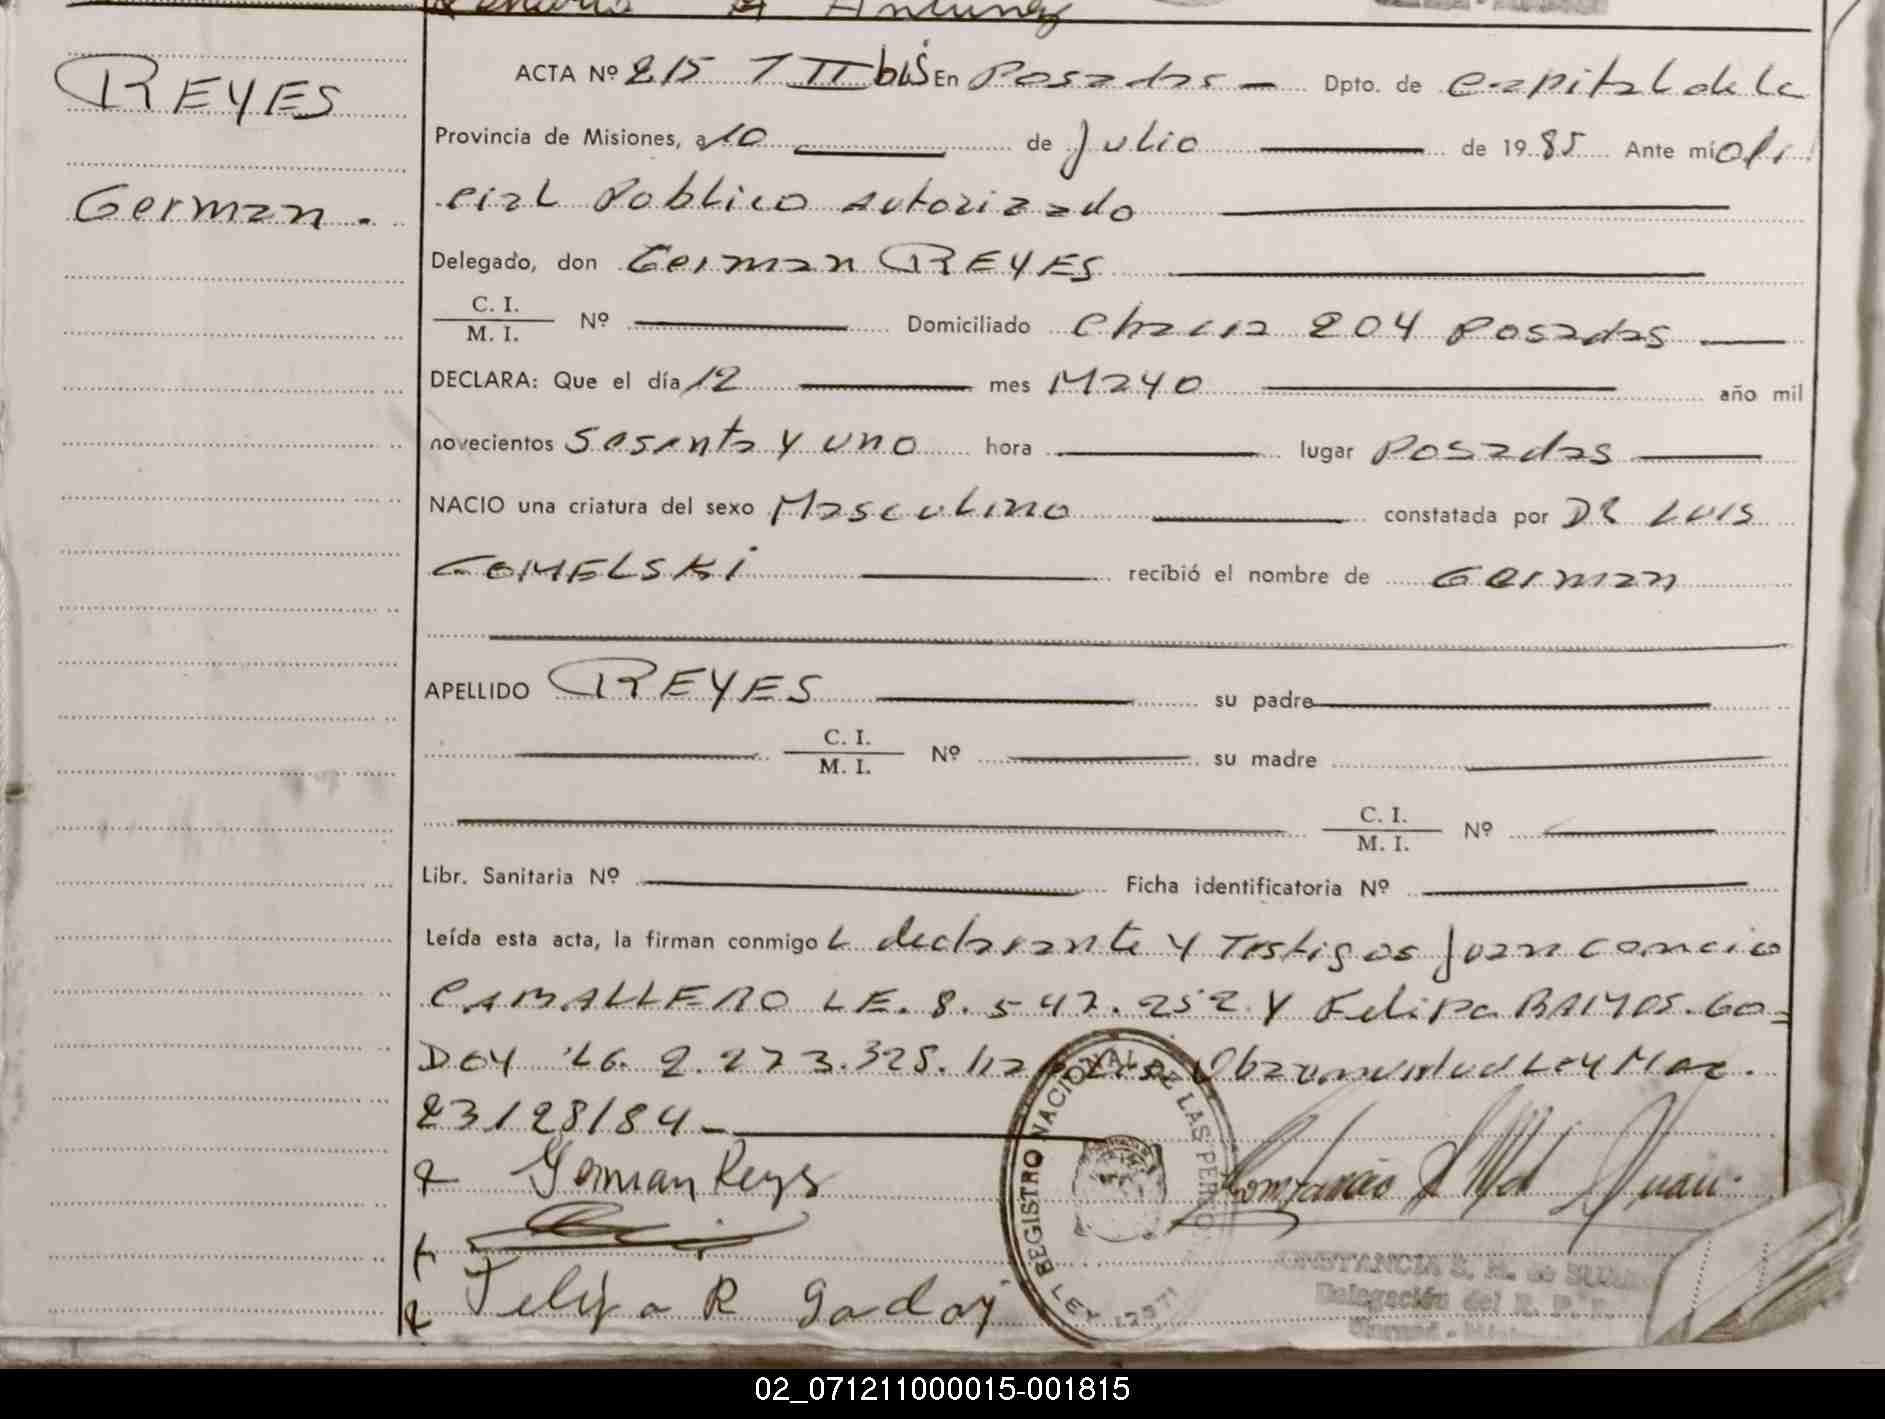 Antunez
REYES
German.
ACTA Nº 215 T II bis En Posadas Dpto. de Capital de la
Provincia de Misiones, a 10 de Julio de 1985 Ante mí Ofi
cial Publico Autorizado
Delegado, don German REYES
C. I.
M. I. Nº Domiciliado Chacra 204 Posadas
DECLARA: Que el día 12 mes Mayo año mil
novecientos Sesenta y uno hora lugar Posadas
NACIO una criatura del sexo Masculino constatada por DR LUIS
GOMELSKI recibió el nombre de German
APELLIDO REYES su padre
C. I.
M. I. Nº su madre
C. I.
M. I. Nº
Libr. Sanitaria Nº Ficha identificatoria Nº
Leída esta acta, la firman conmigo L declarante y Testigos Juan
CABALLERO LE. 8.547.252 Y Felipa RAMOS. GO=
DOY 2.273.325. Ley
23128/84
German Reys
Felipa R Godoy
REGISTRO NACIONAL DE LAS PERSO
LEY 17671
CONSTANCIA S. M. de SUA
Delegación del R. P. P.
02_071211000015-001815